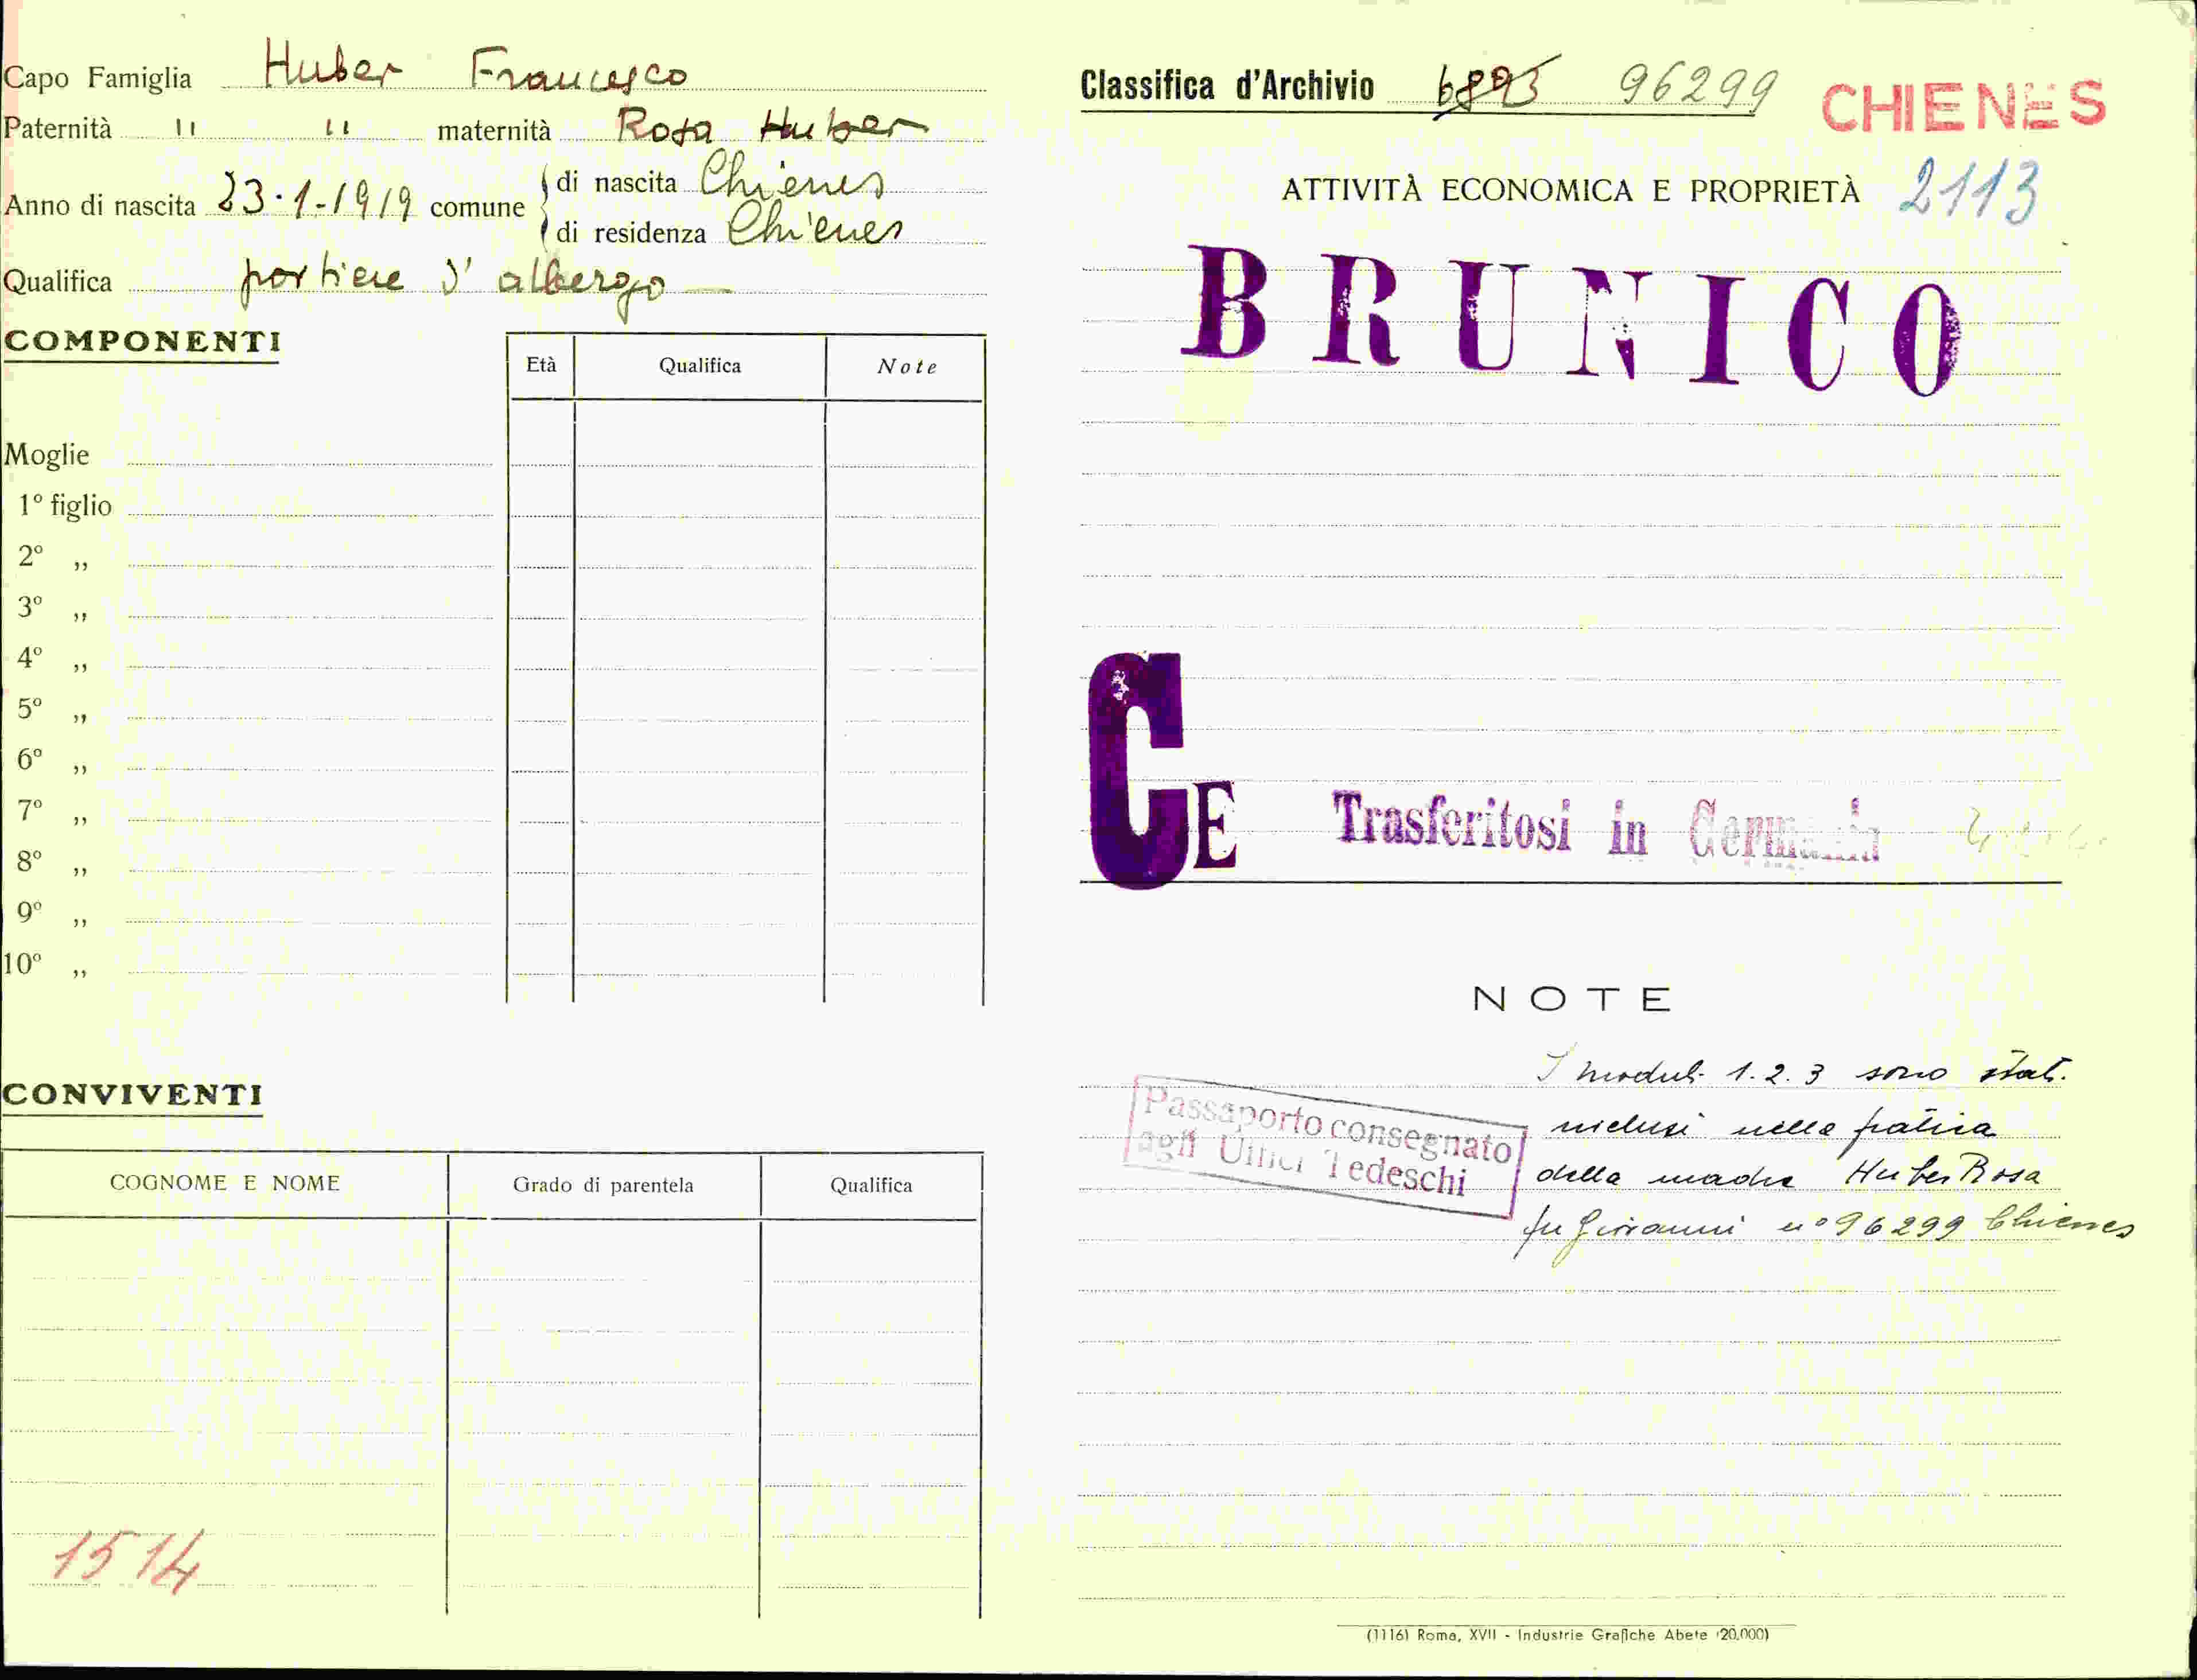 Capo Famiglia Huber Francesco
Paternità " " maternità Rosa Huber
Anno di nascita 23·1-1919 comune
di nascita Chienes
di residenza Chienes
Qualifica portiere d'albergo
COMPONENTI
Età Qualifica Note
Moglie
1º figlio
2º „
3º „
4º „
5º „
6º „
7º „
8º „
9º „
10º „
CONVIVENTI
COGNOME E NOME Grado di parentela Qualifica
1514
Classifica d'Archivio 6893 96299 CHIENES
ATTIVITÀ ECONOMICA E PROPRIETÀ 2113
BRUNICO
CE Trasferitosi in Germania
NOTE
Passaporto consegnato
agli Uffici Tedeschi
I moduli 1.2.3 sono stati
inclusi nella pratica
della madre Huber Rosa
fu Giovanni nº 96299 Chienes
(1116) Roma, XVII - Industrie Grafiche Abete (20.000)